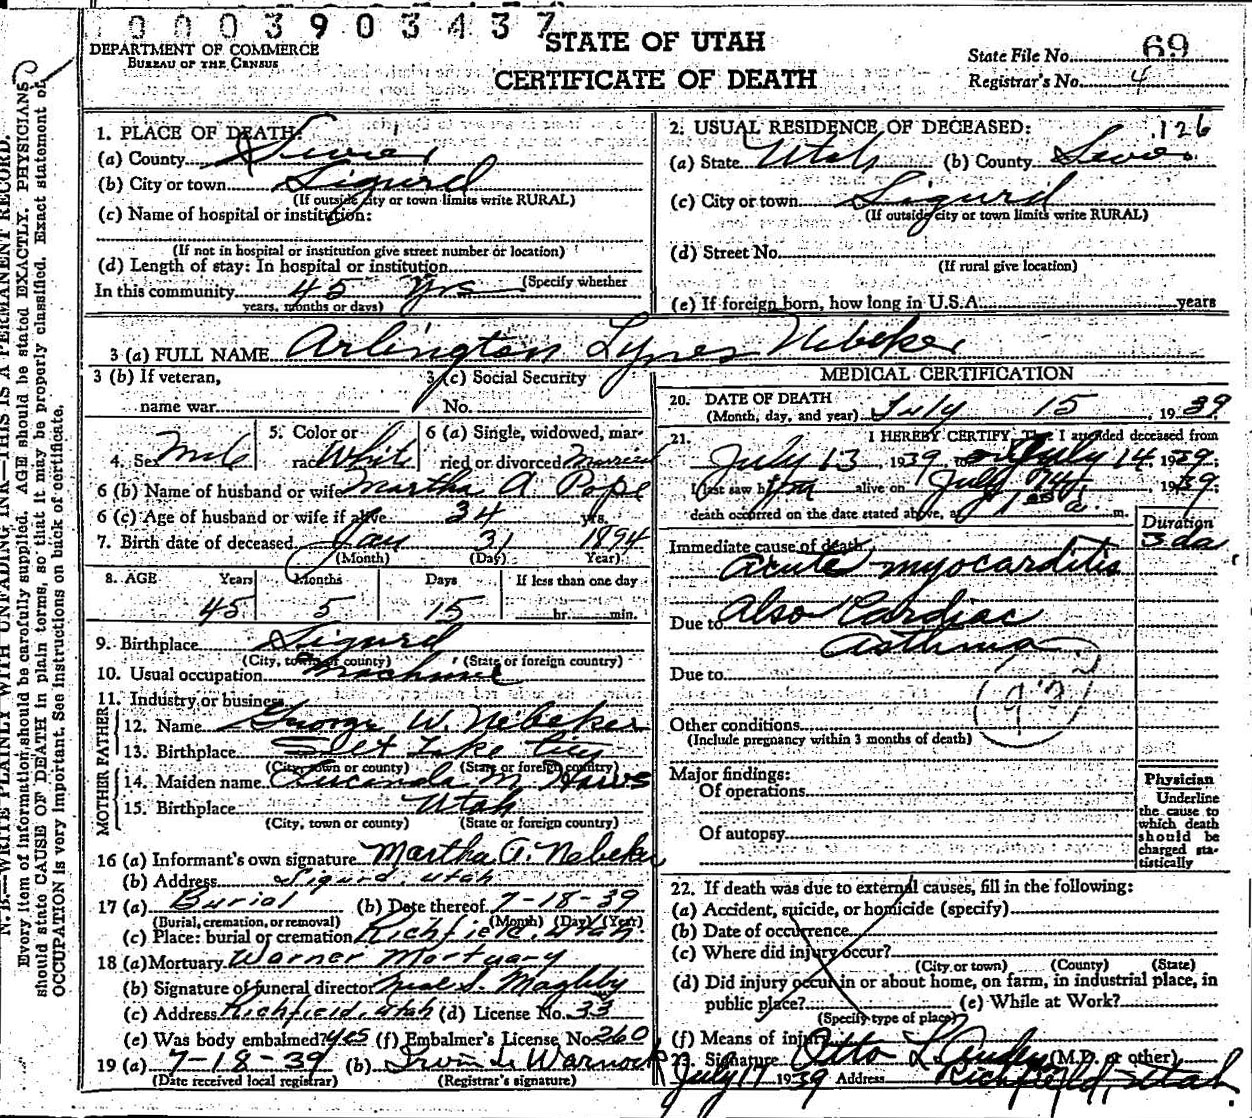 0003903437
DEPARTMENT OF COMMERCE
BUREAU OF THE CENSUS
STATE OF UTAH
CERTIFICATE OF DEATH
State File No. 69
Registrar's No. 4
N. B.—WRITE PLAINLY WITH UNFADING INK—THIS IS A PERMANENT RECORD.
Every item of information should be carefully supplied. AGE should be stated EXACTLY. PHYSICIANS
should state CAUSE OF DEATH in plain terms, so that it may be properly classified. Exact statement of
OCCUPATION is very important. See instructions on back of certificate.
1. PLACE OF DEATH:
(a) County Sevier
(b) City or town Sigurd
(If outside city or town limits write RURAL)
(c) Name of hospital or institution:
(If not in hospital or institution give street number or location)
(d) Length of stay: In hospital or institution
(Specify whether
In this community 45 yrs
years, months or days)
2. USUAL RESIDENCE OF DECEASED: 126
(a) State Utah (b) County Sevier
(c) City or town Sigurd
(If outside city or town limits write RURAL)
(d) Street No.
(If rural give location)
(e) If foreign born, how long in U.S.A. years
3 (a) FULL NAME Arlington Lynes Nebeker
3 (b) If veteran,
name war
3 (c) Social Security
No.
4. Sex Male
5. Color or
race White
6 (a) Single, widowed, mar-
ried or divorced Married
6 (b) Name of husband or wife Martha A Pope
6 (c) Age of husband or wife if alive 34 yrs.
7. Birth date of deceased Jan 31 1894
(Month) (Day) Year)
8. AGE Years Months Days If less than one day
45 5 15 hr. min.
9. Birthplace Sigurd
(City, town or county) (State or foreign country)
10. Usual occupation
11. Industry or business
FATHER
12. Name George W. Nebeker
13. Birthplace Salt Lake City
(City, town or county) (State or foreign country)
MOTHER
14. Maiden name Lucinda M. Haws
15. Birthplace Utah
(City, town or county) (State or foreign country)
16 (a) Informant's own signature Martha A. Nebeker
(b) Address Sigurd, Utah
17 (a) Burial (b) Date thereof 7-18-39
(Burial, cremation, or removal) (Month) (Day) (Year)
(c) Place: burial or cremation Richfield, Utah
18 (a) Mortuary Warner Mortuary
(b) Signature of funeral director Neal S. Magleby
(c) Address Richfield, Utah (d) License No. 33
(e) Was body embalmed? yes (f) Embalmer's License No. 260
19 (a) 7-18-39 (b) Irvin L. Warnock
(Date received local registrar) (Registrar's signature)
MEDICAL CERTIFICATION
20. DATE OF DEATH
(Month, day, and year) July 15, 1939
21. I HEREBY CERTIFY, That I attended deceased from
July 13, 1939 to July 14, 1939
I last saw him alive on July 14, 1939
death occurred on the date stated above, at a. m.
Duration
Immediate cause of death 3 da
Acute myocarditis
Due to Also Cardiac
Asthma
Due to
Other conditions
(Include pregnancy within 3 months of death)
Major findings:
Of operations
Of autopsy
Physician
Underline
the cause to
which death
should be
charged sta-
tistically
22. If death was due to external causes, fill in the following:
(a) Accident, suicide, or homicide (specify)
(b) Date of occurrence
(c) Where did injury occur?
(City or town) (County) (State)
(d) Did injury occur in or about home, on farm, in industrial place, in
public place? (e) While at Work?
(Specify type of place)
(f) Means of injury
23. Signature Otto (M.D. or other)
July 17 1939 Address Richfield, Utah